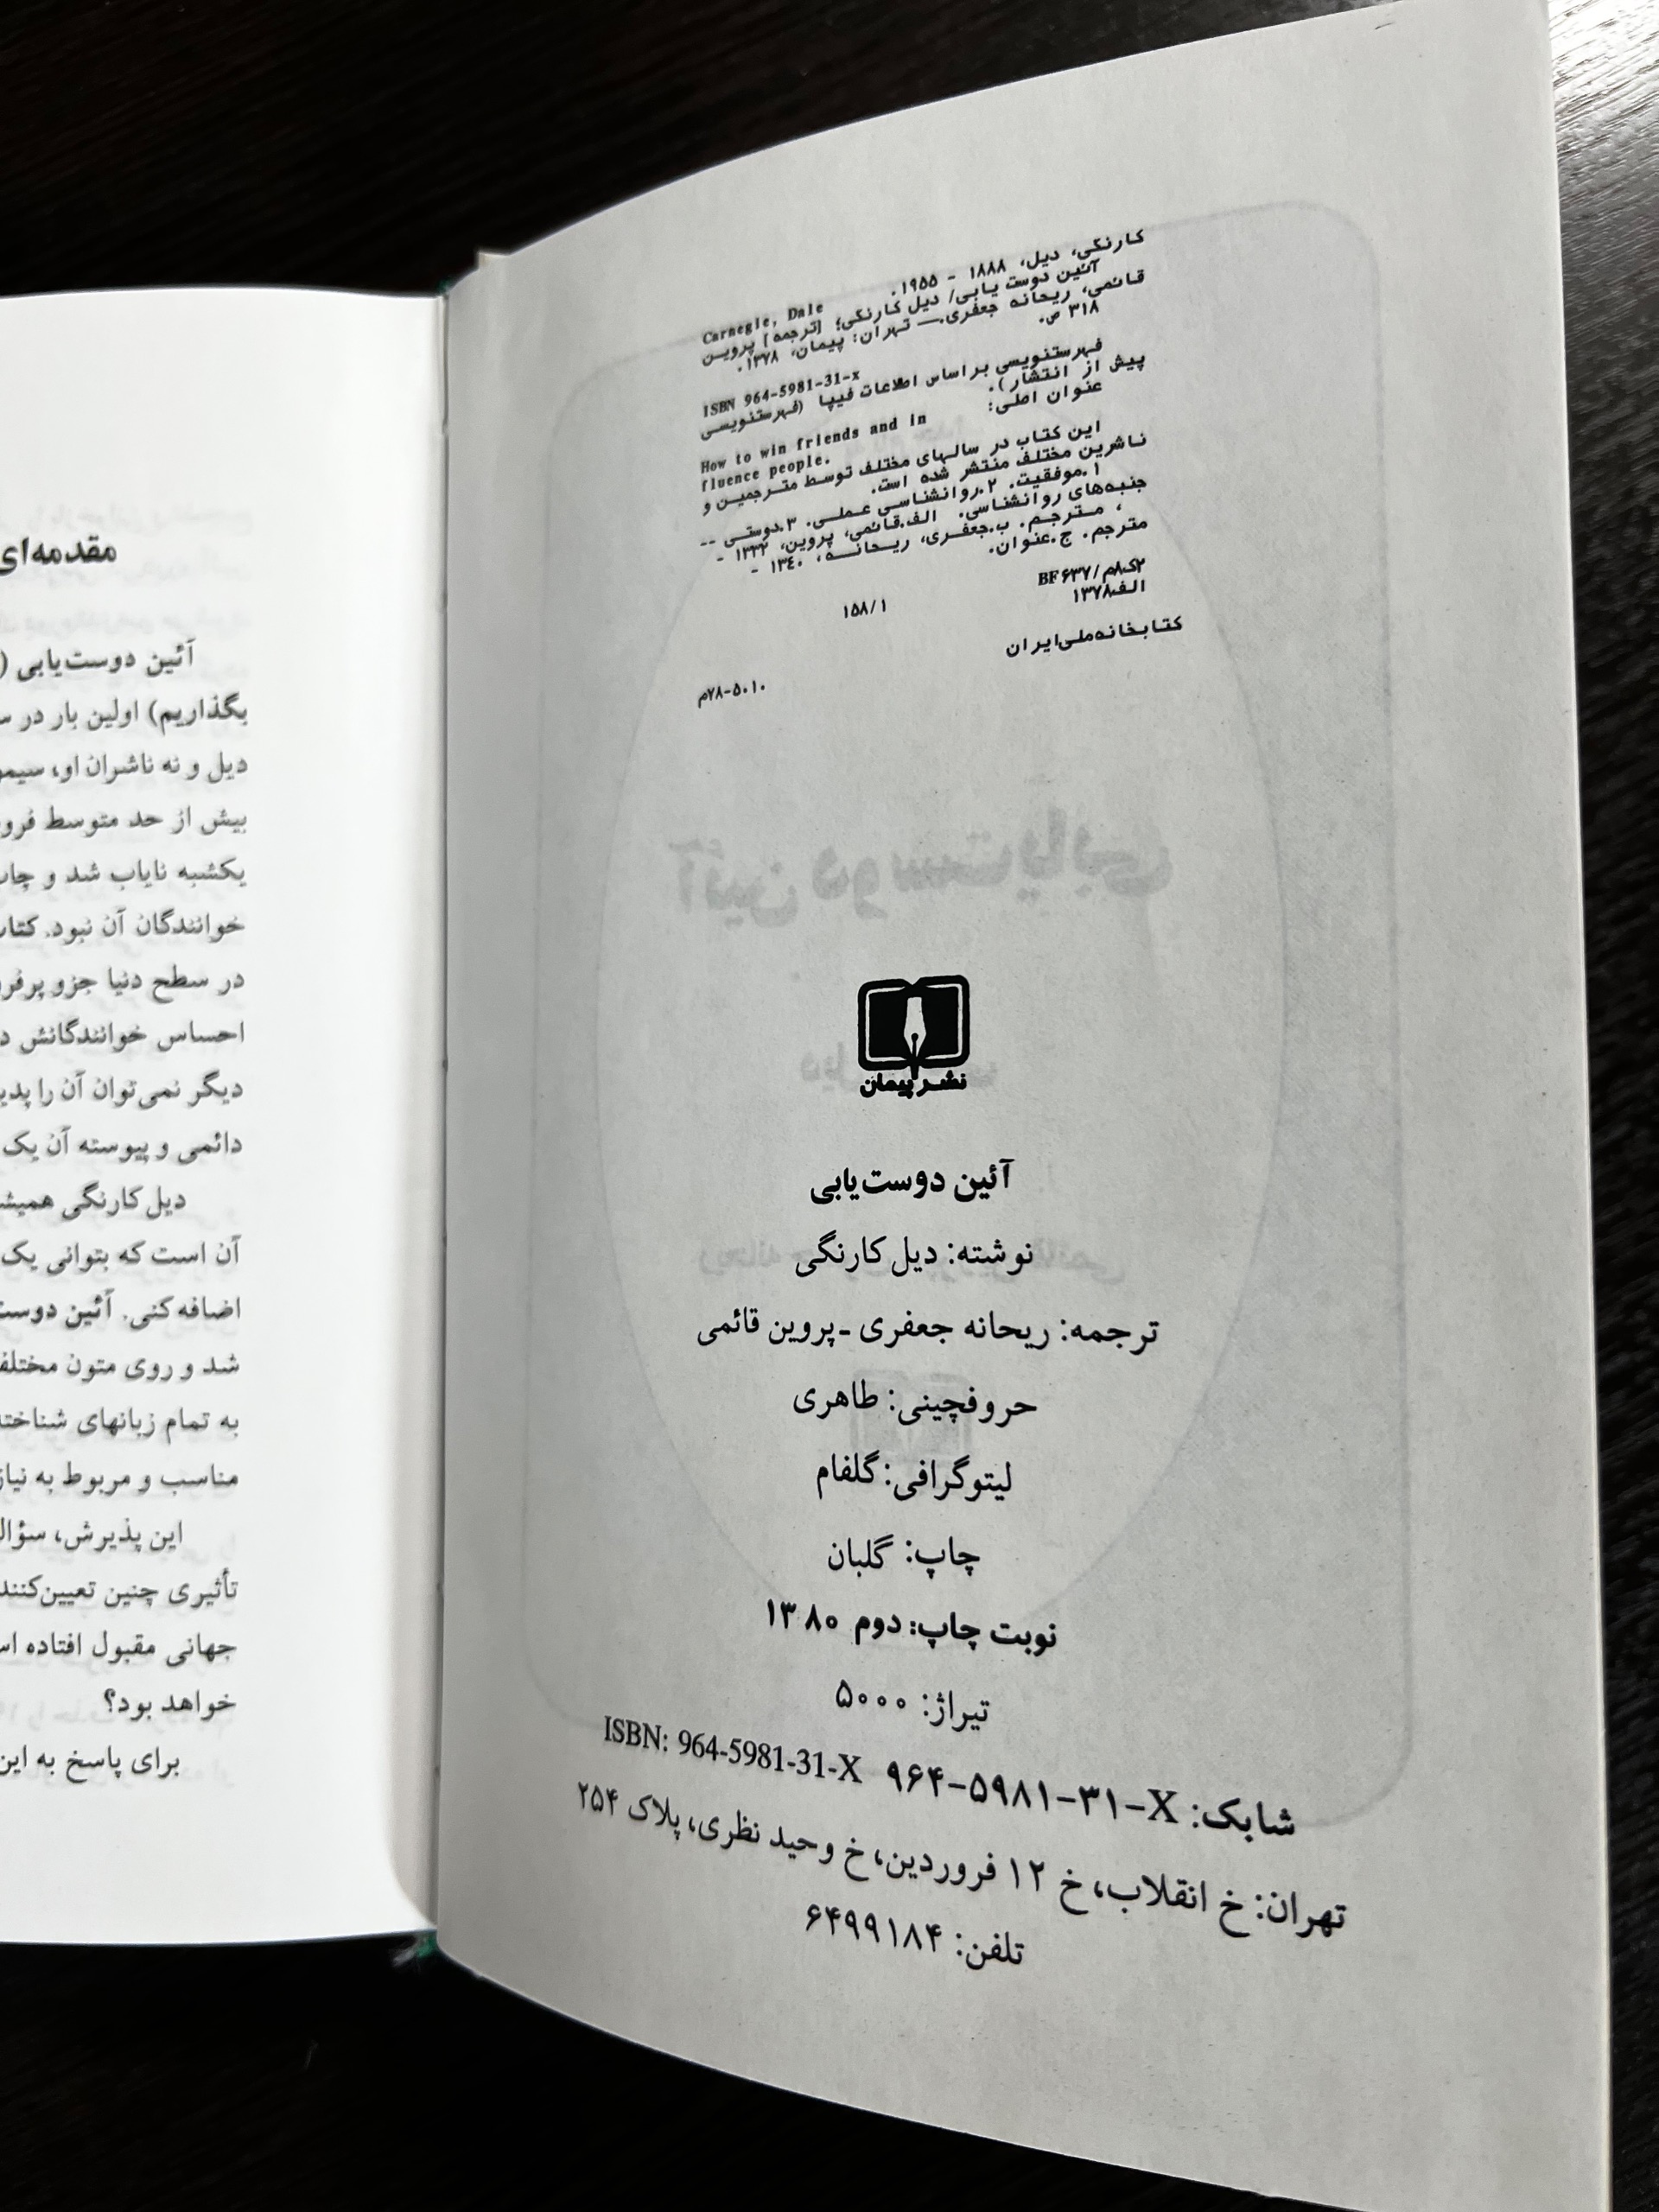 کارنگی، دیل، ۱۸۸۸ - ۱۹۵۵.
Carnegie, Dale
آئین دوست یابی/ دیل کارنگی؛ [ترجمه] پروین
قائمی، ریحانه جعفری.— تهران: پیمان، ۱۳۷۸.
۳۱۸ ص.
ISBN 964-5981-31-x
فهرستنویسی براساس اطلاعات فیپا (فهرستنویسی
پیش از انتشار).
عنوان اصلی:
How to win friends and in
fluence people.
این کتاب در سالهای مختلف توسط مترجمین و
ناشرین مختلف منتشر شده است.
۱.موفقیت. ۲.روانشناسی عملی. ۳.دوستی --
جنبه‌های روانشناسی. الف.قائمی، پروین، ۱۳۳۲ -
، مترجم. ب.جعفری، ریحانه، ۱۳۴۰ -
مترجم. ج.عنوان.
۲ک۸م/ BF ۶۳۷
۱۵۸/۱
الف۱۳۷۸
کتابخانه ملی ایران
۷۸-۵۰۱۰م
نشر پیمان
آئین دوست‌یابی
نوشته: دیل کارنگی
ترجمه: ریحانه جعفری ـ پروین قائمی
حروفچینی: طاهری
لیتوگرافی: گلفام
چاپ: گلبان
نوبت چاپ: دوم ۱۳۸۰
تیراژ: ۵۰۰۰
شابک: ۹۶۴-۵۹۸۱-۳۱-X ISBN: 964-5981-31-X
تهران: خ انقلاب، خ ۱۲ فروردین، خ وحید نظری، پلاک ۲۵۴
تلفن: ۶۴۹۹۱۸۴
مقدمه‌ای
آئین دوست‌یابی (
بگذاریم) اولین بار در
دیل و نه ناشران او،
بیش از حد متوسط
یکشبه نایاب شد و
خوانندگان آن نبود.
در سطح دنیا جزو
احساس خوانندگانش
دیگر نمی‌توان آن را
دائمی و پیوسته آن یک
دیل کارنگی
آن است که بتوانی یک
اضافه کنی. آئین
شد و روی متون
به تمام زبانهای
مناسب و مربوط به
این پذیرش،
تأثیری چنین
جهانی مقبول افتاده
خواهد بود؟
برای پاسخ به